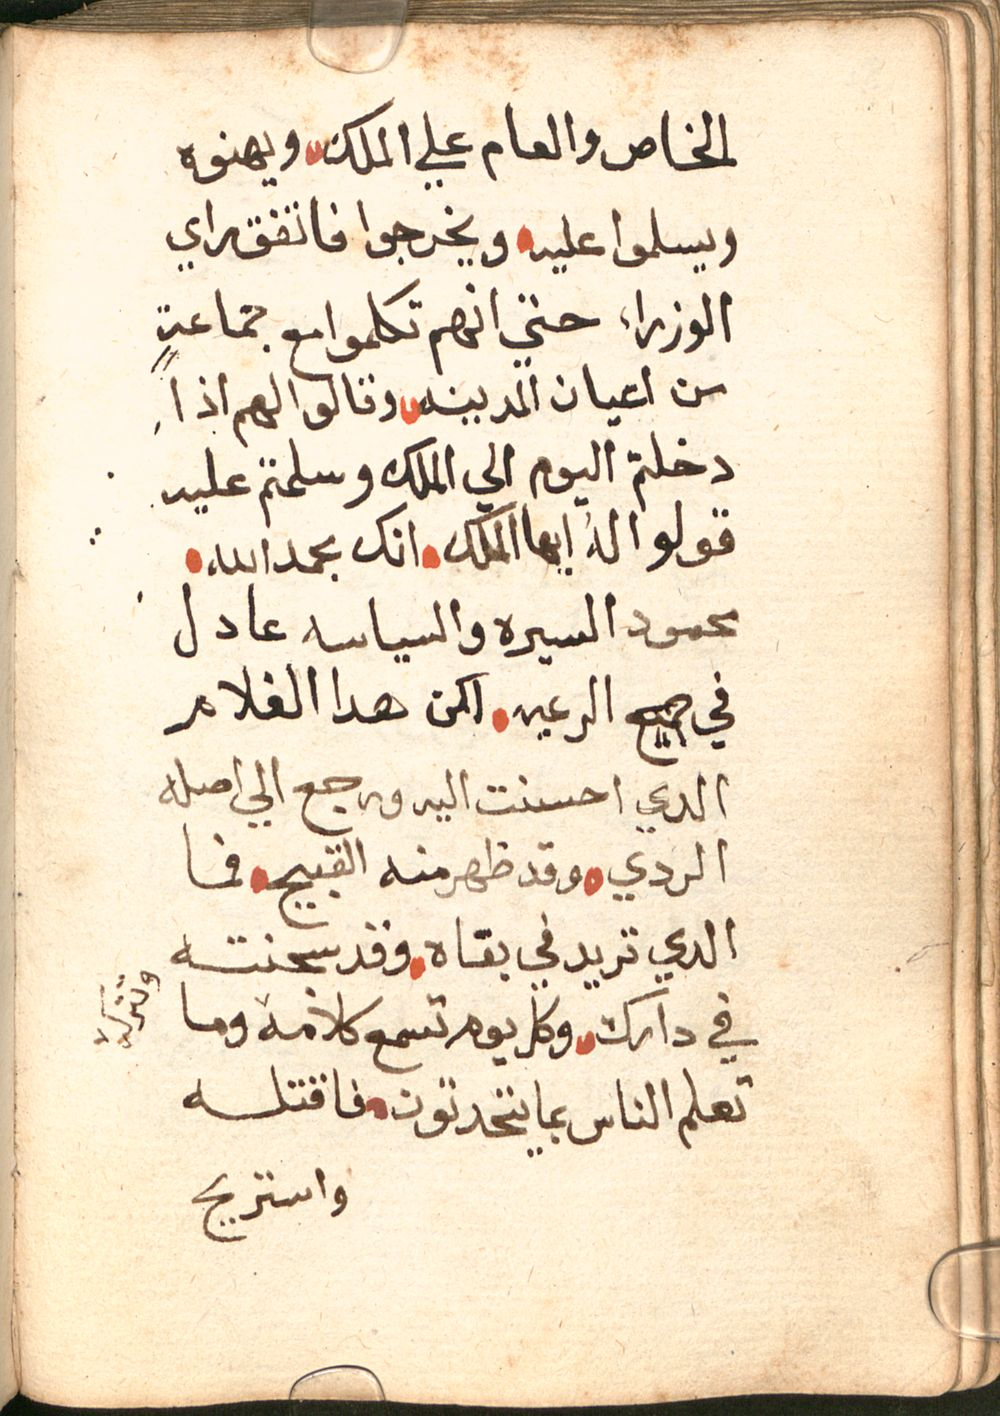 الخاص والعام علي الملك ويهنوه
ويسلموا عليه ويخرجوا فاتفق راي
الوزراء حتي انهم تكلموا مع جماعة
من اعيان المدينه وقالوا لهم اذا
دخلتم اليوم الي الملك وسلمتم عليه
قولوا له ايها الملك انك بحمد الله
محمود السيره والسياسه عادل
في جميع الرعيه لكن هدا الغلام
الدي احسنت اليه ورجع الي اصله
الردي وقد ظهر منه القبيح فما
الدي تريد في بقاه وقد سجنته
في دارك وكل يوم تسمع كلامه وما
تعلم الناس بما يتحدتون فاقتله
واستريح